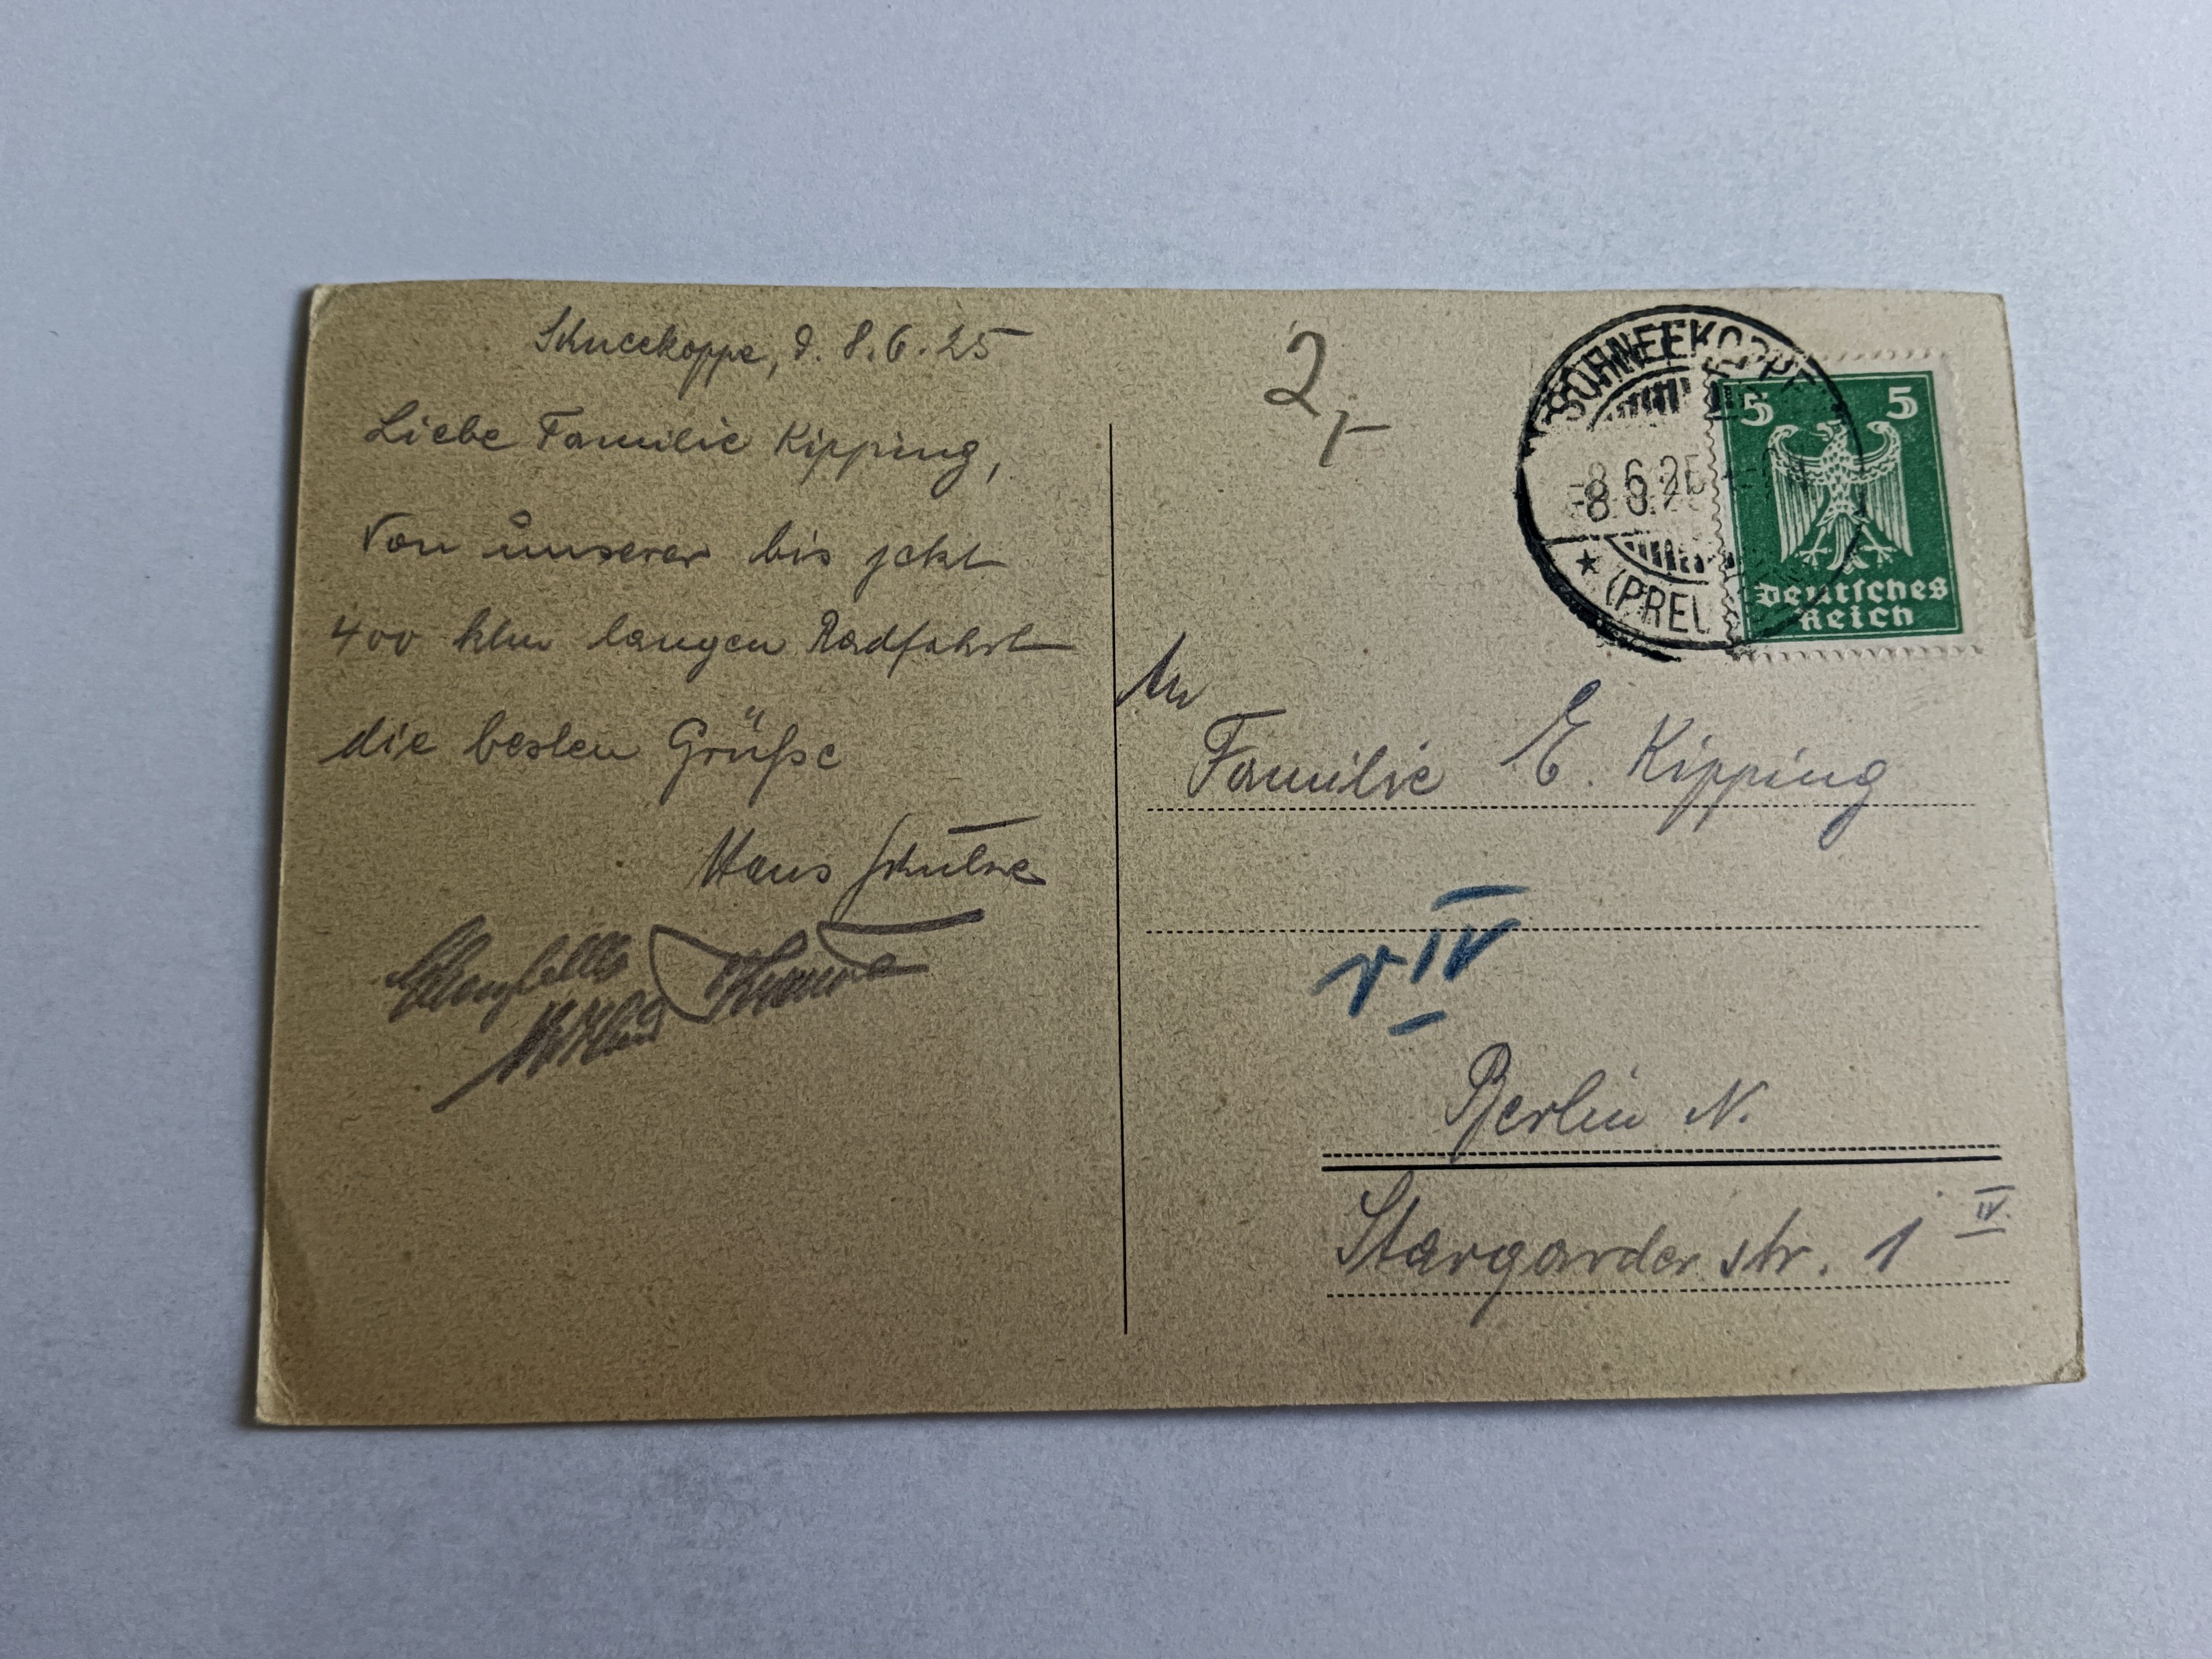 Schneekoppe, d. 8.6.25
Liebe Familie Kipping,
Von unserer bis jetzt
400 klm langen Radfahrt
die besten Grüße
Hans Schulze
2,-
SCHNEEKOPPE
-8.6.25
* (PREU
5 5
Deutsches
Reich
An
Familie E. Kipping
v IV
Berlin N.
Stargarder str. 1 IV.